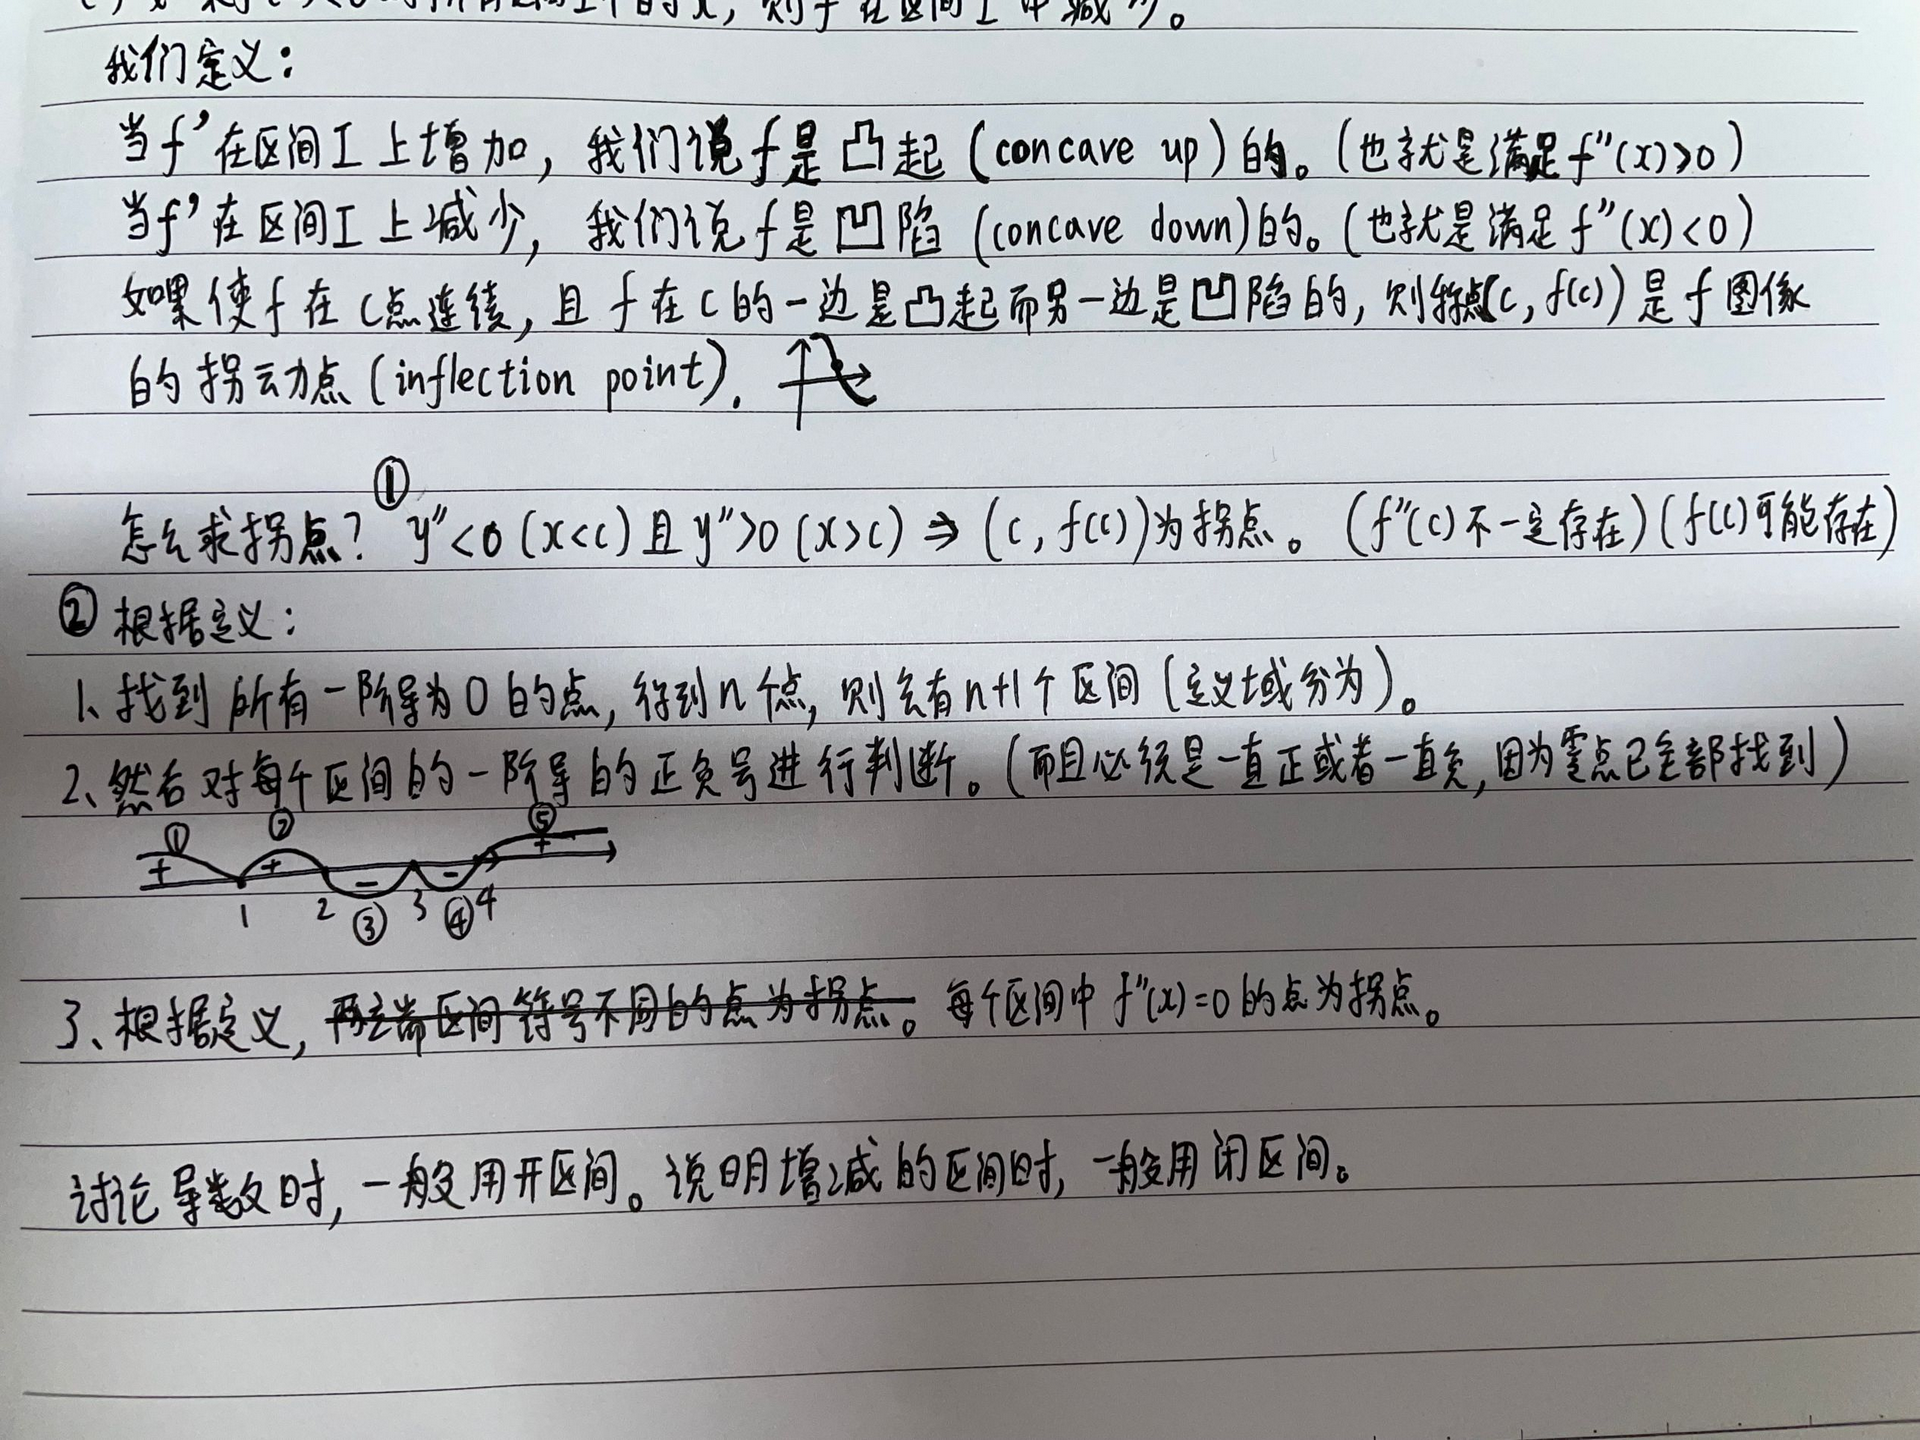 则 f 在区间 I 中减少。
我们定义：
当f'在区间I上增加，我们说f是凸起(concave up)的。(也就是满足f''(x)>0)
当f'在区间I上减少，我们说f是凹陷(concave down)的。(也就是满足f''(x)<0)
如果使f在c点连续，且f在c的一边是凸起而另一边是凹陷的，则称点(c, f(c))是f图像
的拐动点(inflection point).
①
怎么求拐点？ y''<0 (x<c) 且 y''>0 (x>c) ⇒ (c, f(c))为拐点。(f''(c)不一定存在)(f(c)可能存在)
② 根据定义：
1、找到所有一阶导为0的点，得到n个点，则会有n+1个区间(定义域分为)。
2、然后对每个区间的一阶导的正负号进行判断。(而且必须是一直正或者一直负，因为零点已全部找到)
① ② ⑤
+ + − − +
1 2 ③ 3 ④ 4
3、根据定义，两端区间符号不同的点为拐点。每个区间中f''(x)=0的点为拐点。
讨论导数时，一般用开区间。说明增减的区间时，一般用闭区间。